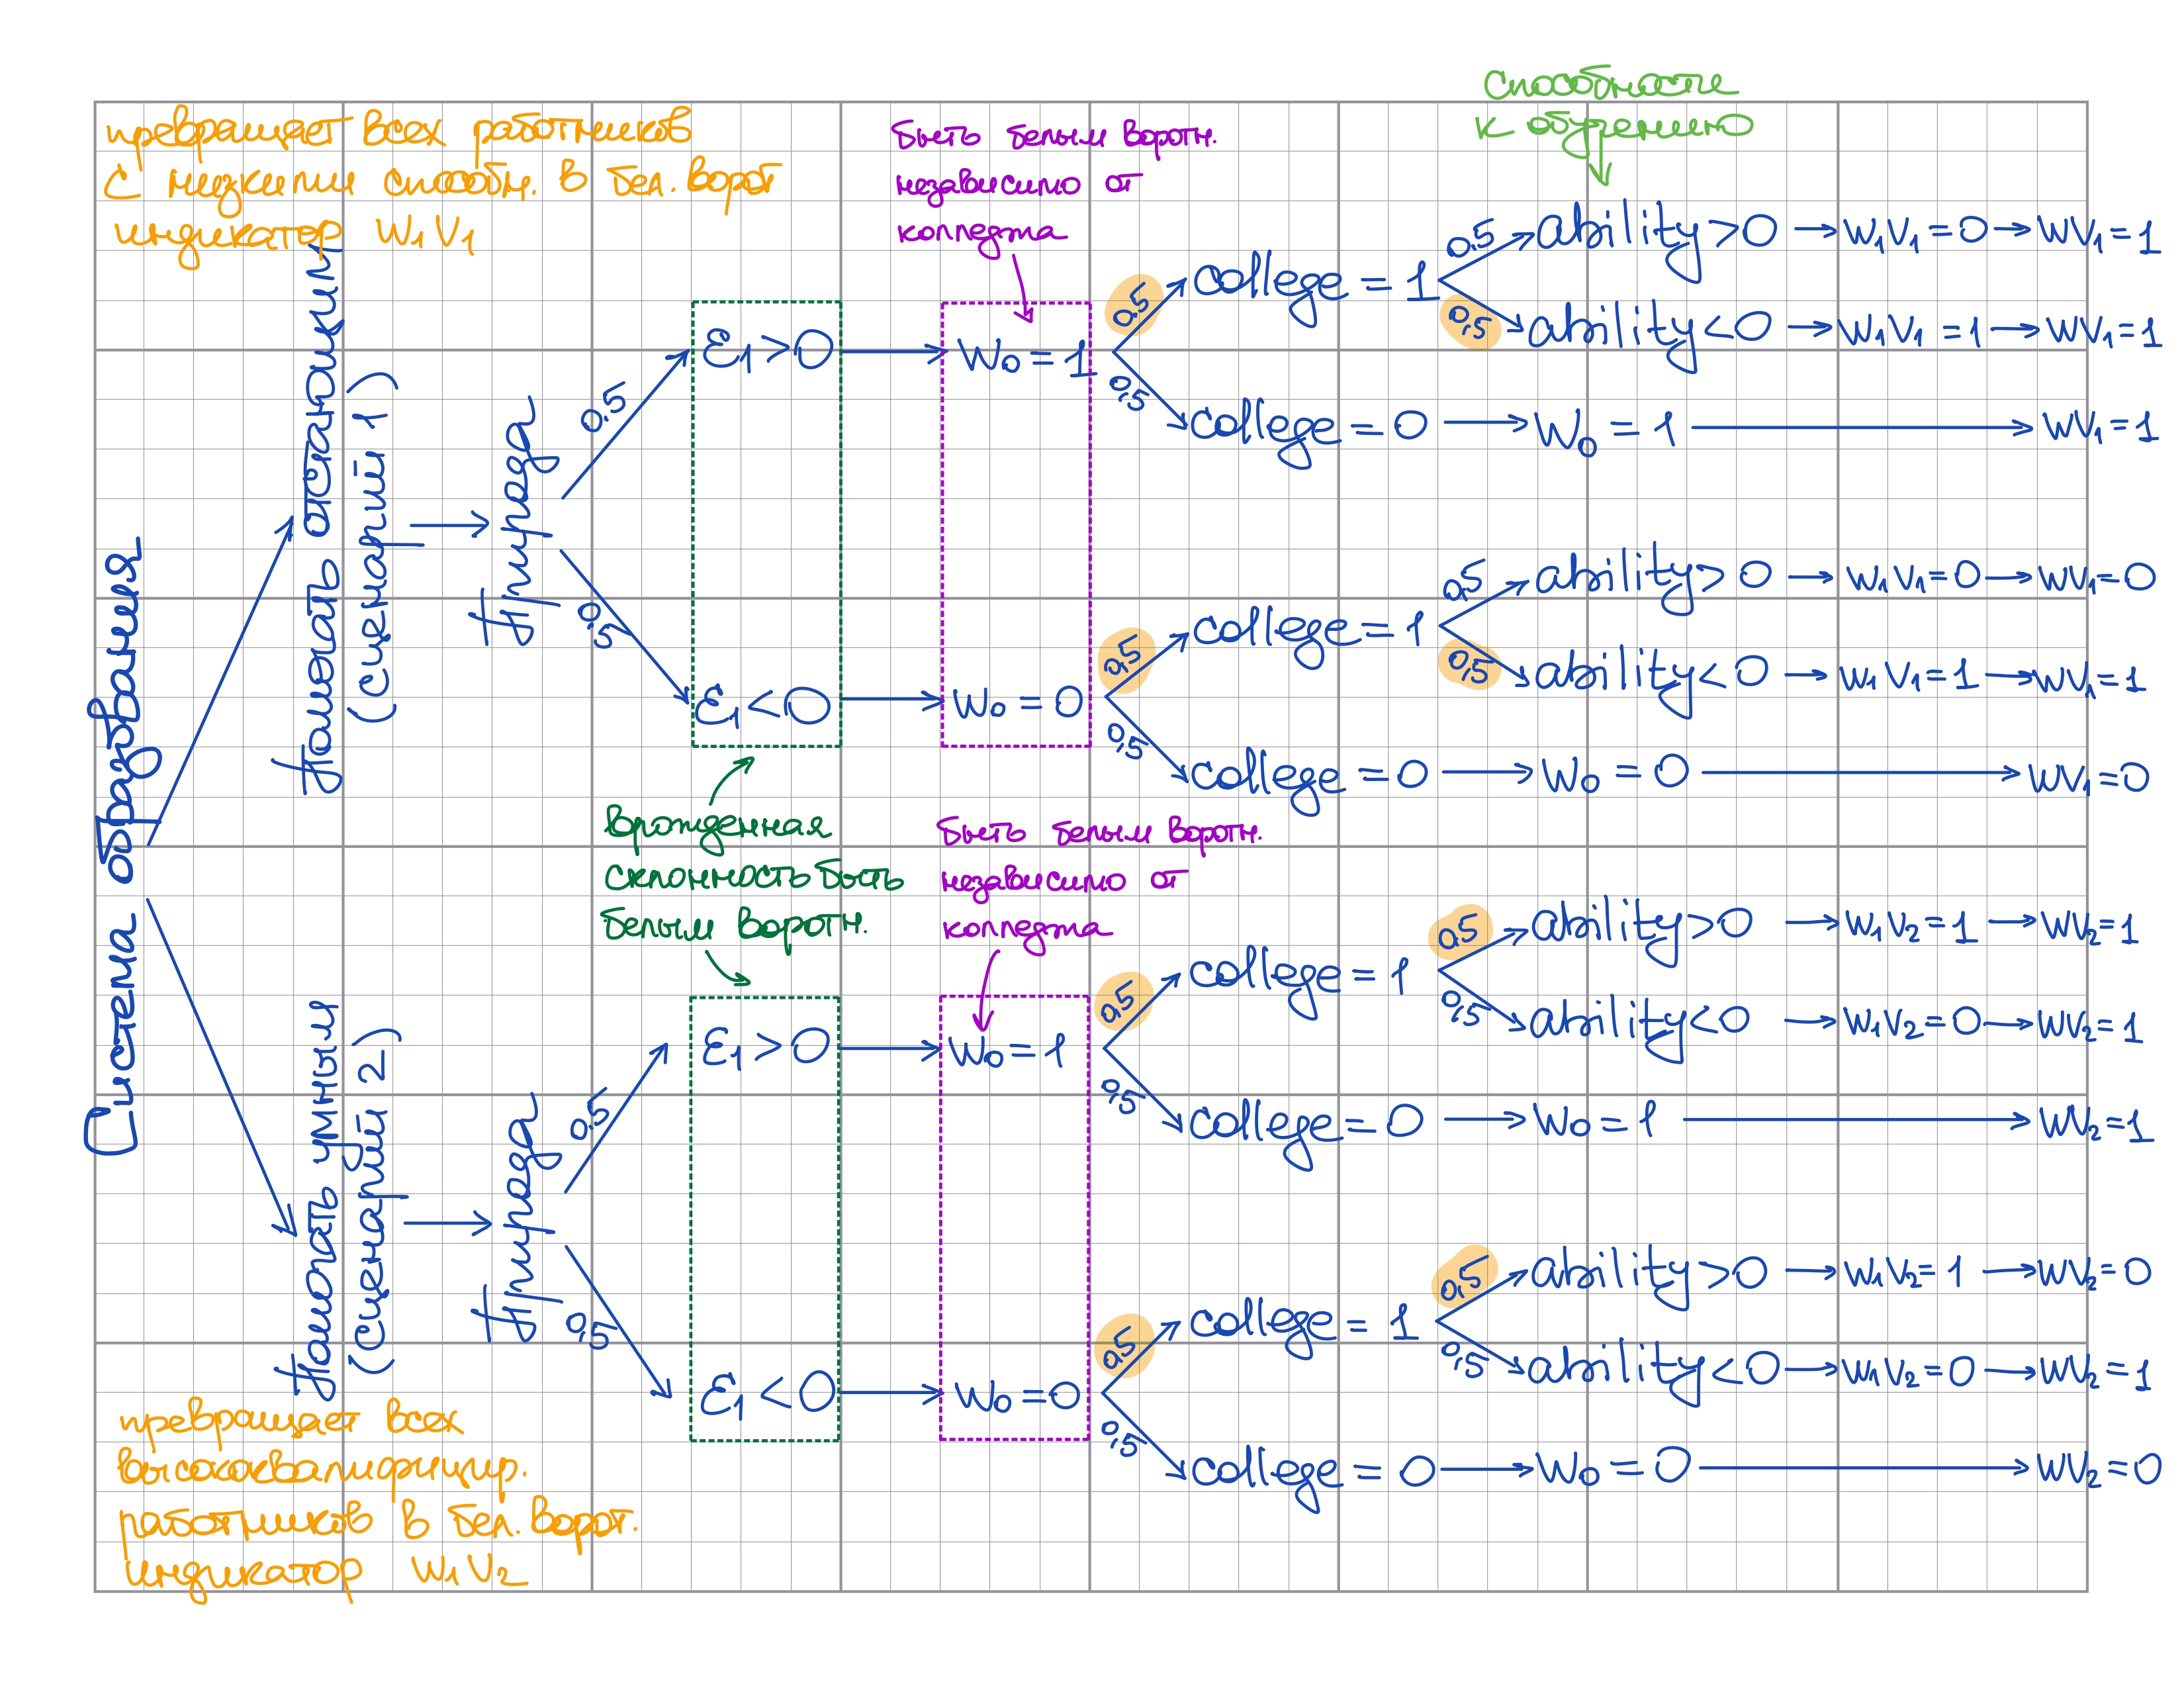 способности
к обучению
превращает всех работников
с низкими способн. в бел. ворот
индикатор W₁V₁
Быть белым воротн.
независимо от
колледжа
Система образования
Помогать отстающим
(сценарий 1)
Природа
0.5
ε₁ > 0
W₀ = 1
0.5
college = 1
0.5
ability > 0 → W₁V₁ = 0 → WV₁ = 1
0.5
ability < 0 → W₁V₁ = 1 → WV₁ = 1
0.5
college = 0 → W₀ = 1 → WV₁ = 1
0.5
ε₁ < 0
W₀ = 0
0.5
college = 1
0.5
ability > 0 → W₁V₁ = 0 → WV₁ = 0
0.5
ability < 0 → W₁V₁ = 1 → WV₁ = 1
0.5
college = 0 → W₀ = 0 → WV₁ = 0
Врожденная
склонность быть
белым воротн.
Быть белым воротн.
независимо от
колледжа
Помогать умным
(сценарий 2)
Природа
0.5
ε₁ > 0
W₀ = 1
0.5
college = 1
0.5
ability > 0 → W₁V₂ = 1 → WV₂ = 1
0.5
ability < 0 → W₁V₂ = 0 → WV₂ = 1
0.5
college = 0 → W₀ = 1 → WV₂ = 1
0.5
ε₁ < 0
W₀ = 0
0.5
college = 1
0.5
ability > 0 → W₁V₂ = 1 → WV₂ = 0
0.5
ability < 0 → W₁V₂ = 0 → WV₂ = 1
0.5
college = 0 → W₀ = 0 → WV₂ = 0
превращает всех
высококвалифицир.
работников в бел. ворот.
индикатор W₁V₂